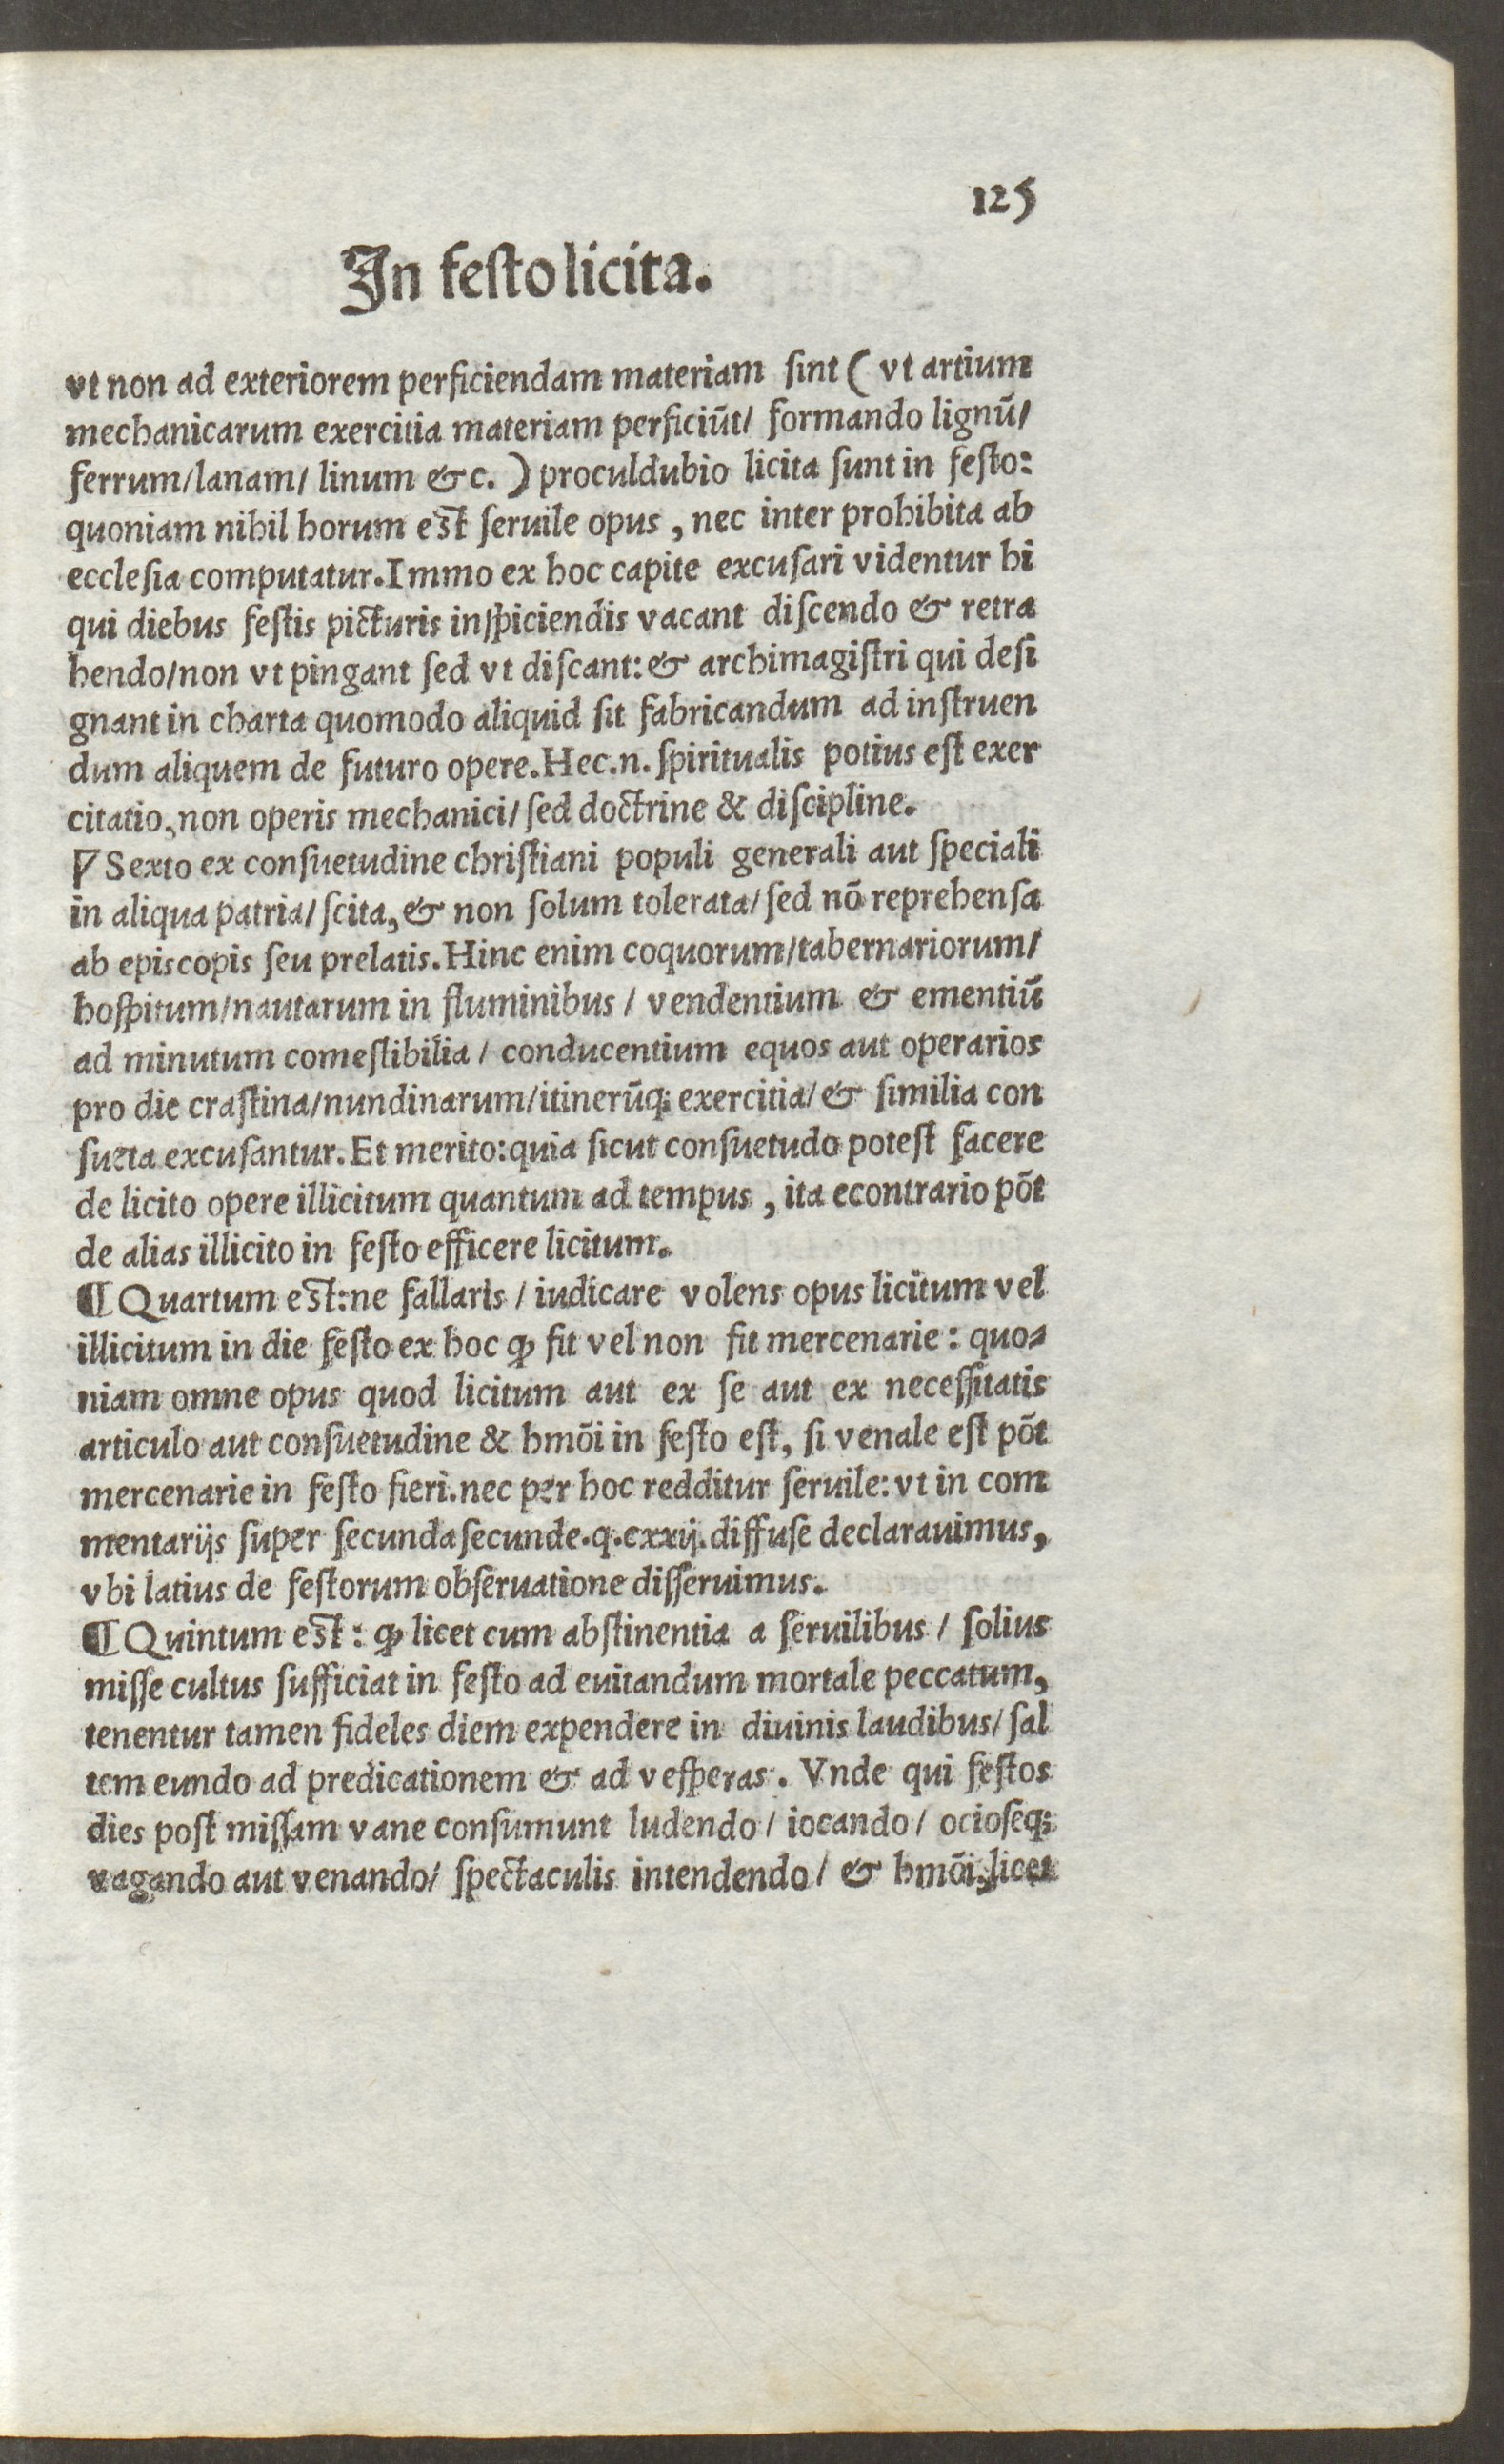 125
In festo licita.
vt non ad exteriorem perficiendam materiam sint ( vt artium
mechanicarum exercitia materiam perficiūt/ formando lignū/
ferrum/lanam/ linum &c. ) proculdubio licita sunt in festo:
quoniam nihil horum est seruile opus , nec inter prohibita ab
ecclesia computatur. Immo ex hoc capite excusari videntur hi
qui diebus festis picturis inspiciendis vacant discendo & retra
hendo/non vt pingant sed vt discant: & archimagistri qui desi
gnant in charta quomodo aliquid sit fabricandum ad instruen
dum aliquem de futuro opere. Hec.n. spiritualis potius est exer
citatio, non operis mechanici/ sed doctrine & discipline.
Sexto ex consuetudine christiani populi generali aut speciali
in aliqua patria/ scita, & non solum tolerata/ sed nō reprehensa
ab episcopis seu prelatis. Hinc enim coquorum/tabernariorum/
hospitum/nautarum in fluminibus / vendentium & ementiū
ad minutum comestibilia / conducentium equos aut operarios
pro die crastina/nundinarum/itinerūq; exercitia/ & similia con
sueta excusantur. Et merito: quia sicut consuetudo potest facere
de licito opere illicitum quantum ad tempus , ita econtrario pōt
de alias illicito in festo efficere licitum.
¶ Quartum est: ne fallaris / iudicare volens opus licitum vel
illicitum in die festo ex hoc ꝙ fit vel non fit mercenarie : quo⸗
niam omne opus quod licitum aut ex se aut ex necessitatis
articulo aut consuetudine & hmōi in festo est, si venale est pōt
mercenarie in festo fieri. nec per hoc redditur seruile: vt in com
mentarijs super secunda secunde. q. cxxij. diffuse declarauimus,
vbi latius de festorum obseruatione disseruimus.
¶ Quintum est : ꝙ licet cum abstinentia a seruilibus / solius
misse cultus sufficiat in festo ad euitandum mortale peccatum,
tenentur tamen fideles diem expendere in diuinis laudibus/ sal
tem eundo ad predicationem & ad vesperas . Vnde qui festos
dies post missam vane consumunt ludendo / iocando / ocioseq;
vagando aut venando/ spectaculis intendendo / & hmōi, licet